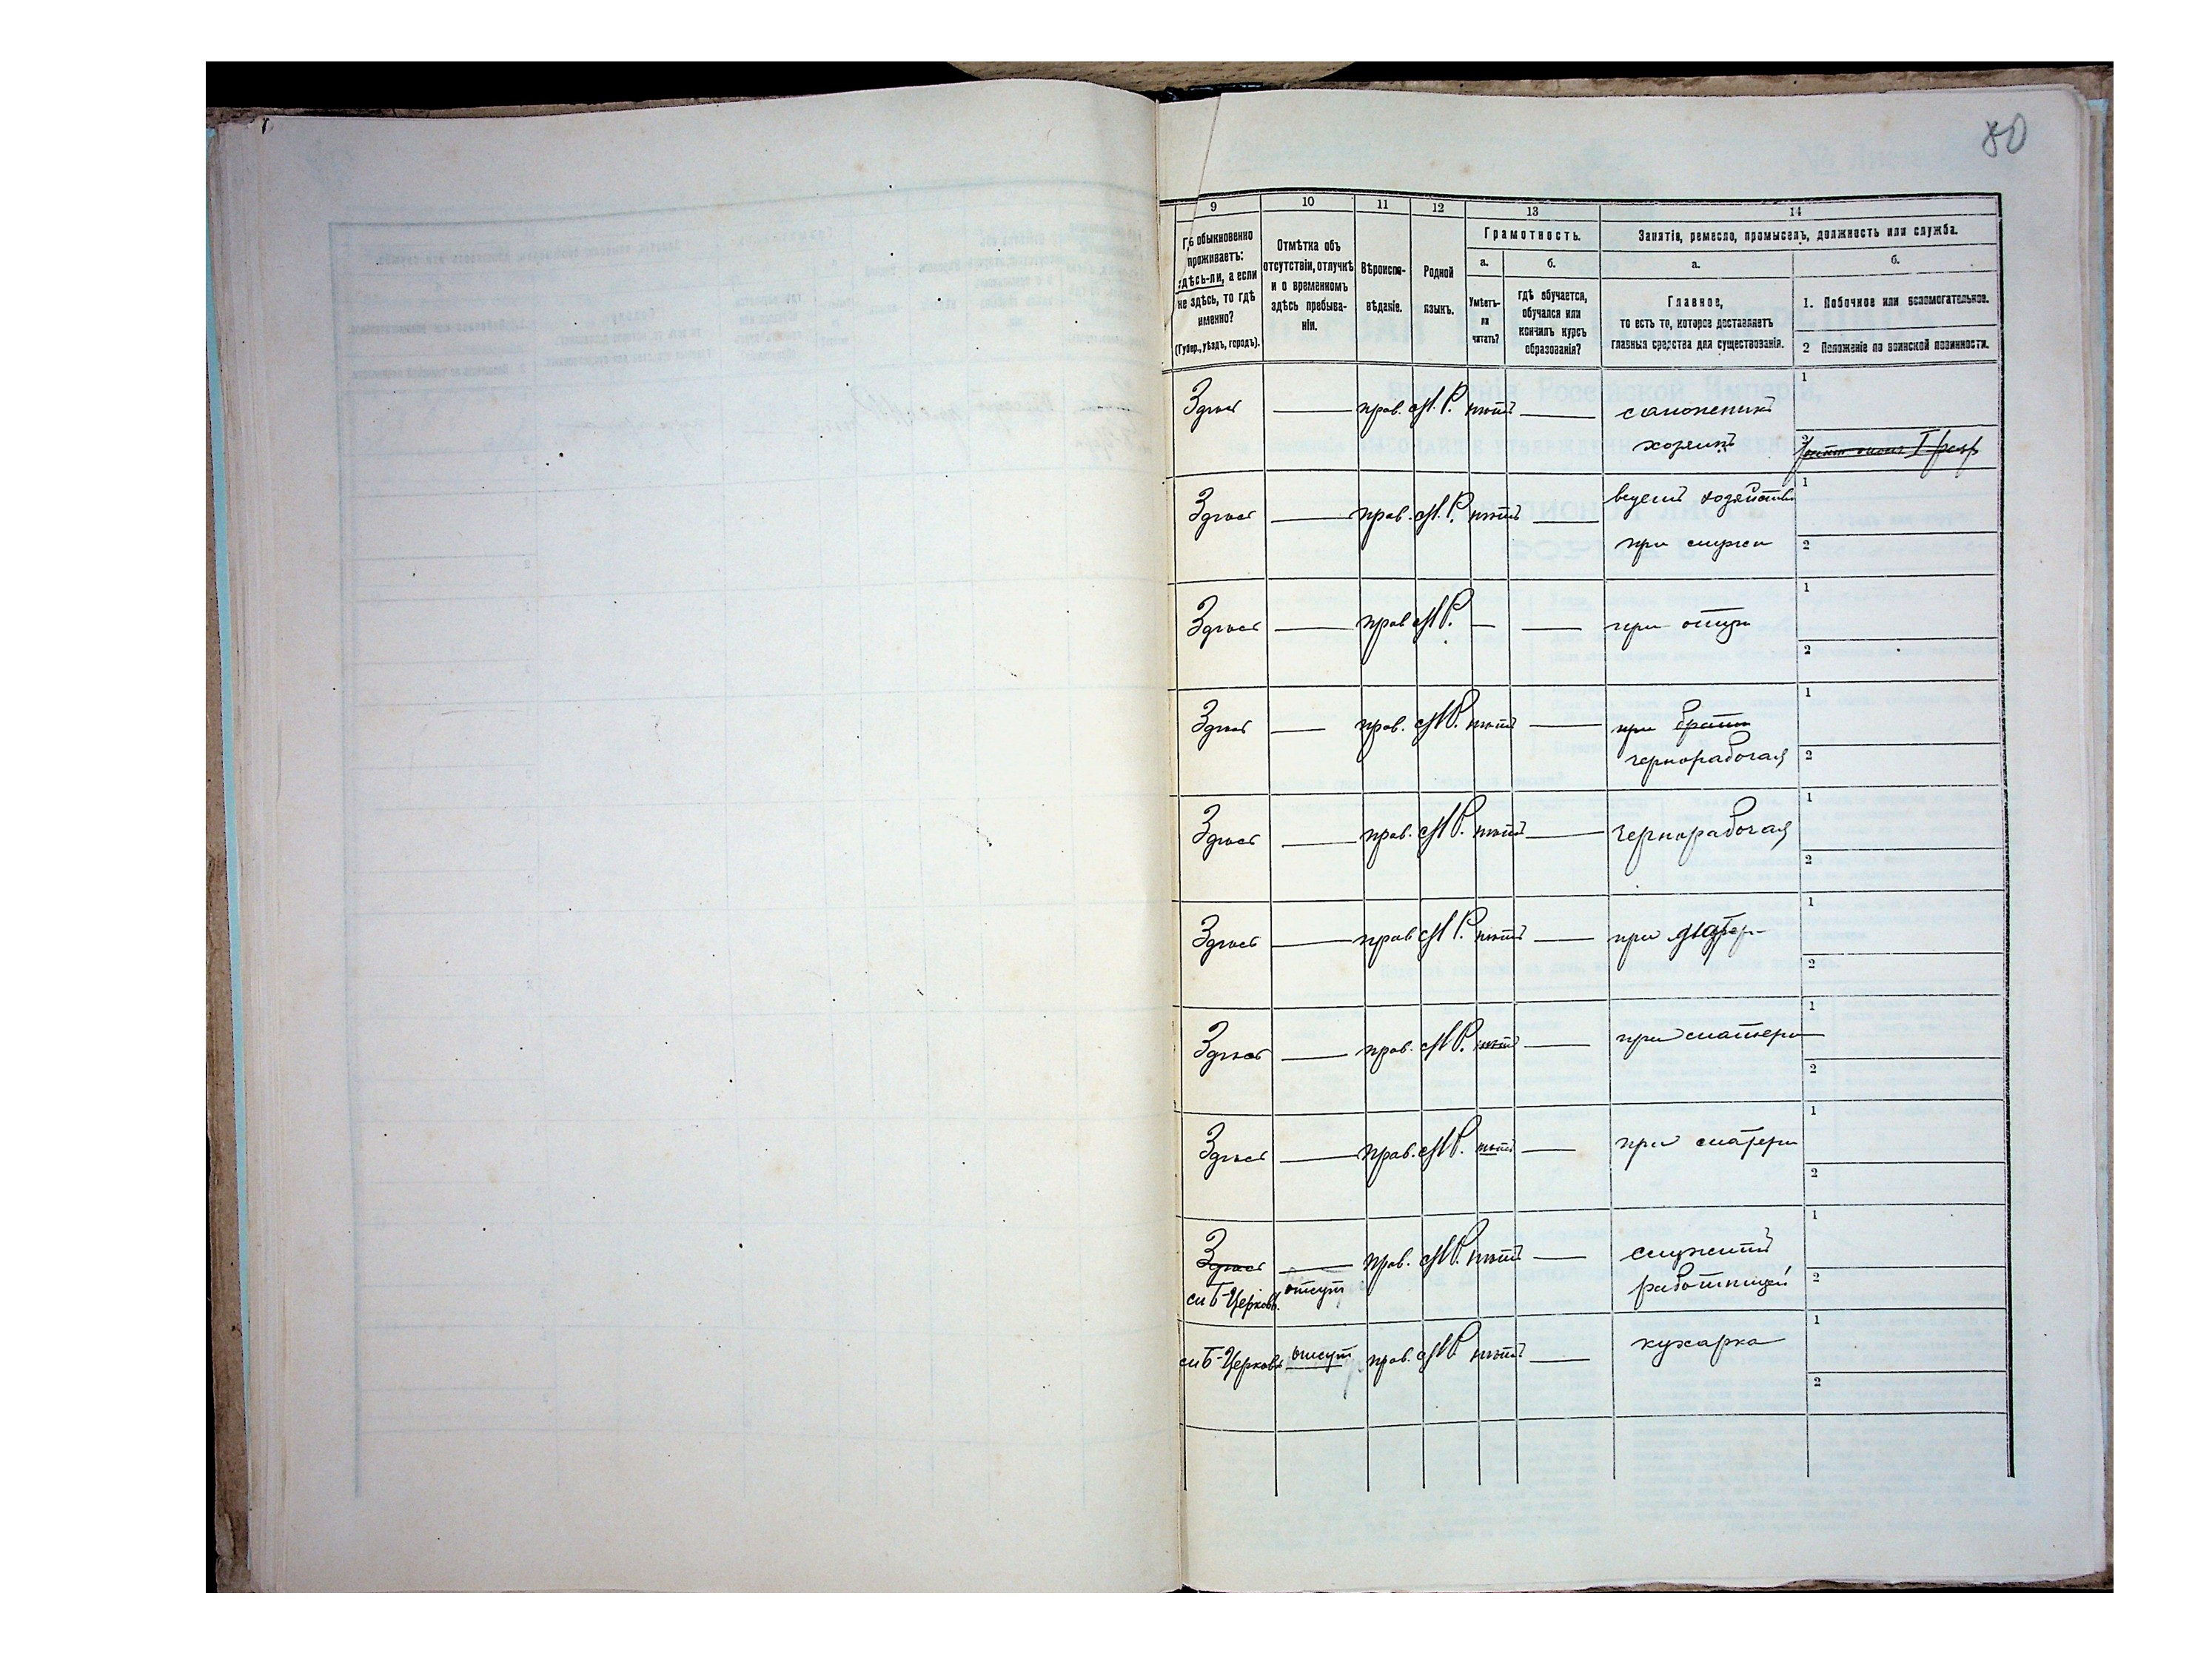 80
9 10 11 12 13 14
Гдѣ обыкновенно проживаетъ: здѣсь-ли, а если не здѣсь, то гдѣ именно? (Губер., уѣздъ, городъ).
Отмѣтка объ отсутствіи, отлучкѣ и о временномъ здѣсь пребываніи.
Вѣроисповѣданіе.
Родной языкъ.
Грамотность.
а. Умѣетъ-ли читать?
б. гдѣ обучается, обучался или кончилъ курсъ образованія?
Занятіе, ремесло, промыселъ, должность или служба.
а. Главное, то есть то, которое доставляетъ главныя средства для существованія.
б.
1. Побочное или вспомогательное.
2 Положеніе по воинской повинности.
Здѣсь — прав. М.Р. нѣтъ — сапожникъ 1
хозяинъ 2
Здѣсь — прав. М.Р. нѣтъ — ведетъ хозяйство 1
при мужѣ 2
Здѣсь — прав М.Р. — — при отцѣ 1
2
Здѣсь — прав. М.Р. нѣтъ — при братѣ 1
чернорабочая 2
Здѣсь — прав. М.Р. нѣтъ — чернорабочая 1
2
Здѣсь — прав М.Р. нѣтъ — при 1
2
Здѣсь — прав. М.Р. нѣтъ — при матери 1
2
Здѣсь — прав. М.Р. нѣтъ — при матери 1
2
Здѣсь — прав. М.Р. нѣтъ — служитъ 1
м Б-Церковь отсут работницей 2
м Б-Церковь отсут прав. М.Р. нѣтъ — кухарка 1
2